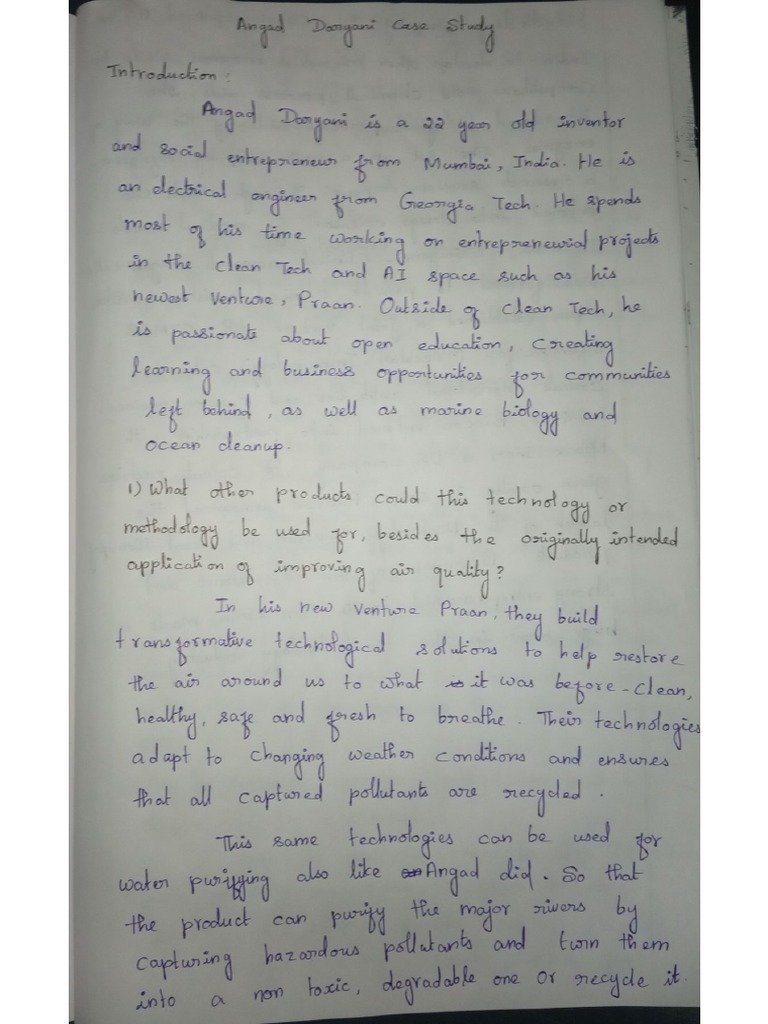 Angad Daryani Case Study
Introduction:
Angad Daryani is a 22 year old inventor
and social entrepreneur from Mumbai, India. He is
an electrical engineer from Georgia Tech. He spends
most of his time working on entrepreneurial projects
in the Clean Tech and AI space such as his
newest venture, Praan. Outside of Clean Tech, he
is passionate about open education, creating
learning and business opportunities for communities
left behind, as well as marine biology and
ocean cleanup.
1) What other products could this technology or
methodology be used for, besides the originally intended
application of improving air quality?
In his new venture Praan, they build
transformative technological solutions to help restore
the air around us to what it was before - clean,
healthy, safe and fresh to breathe. Their technologies
adapt to changing weather conditions and ensures
that all captured pollutants are recycled.
This same technologies can be used for
water purifying also like Angad did. So that
the product can purify the major rivers by
capturing hazardous pollutants and turn them
into a non toxic, degradable one or recycle it.